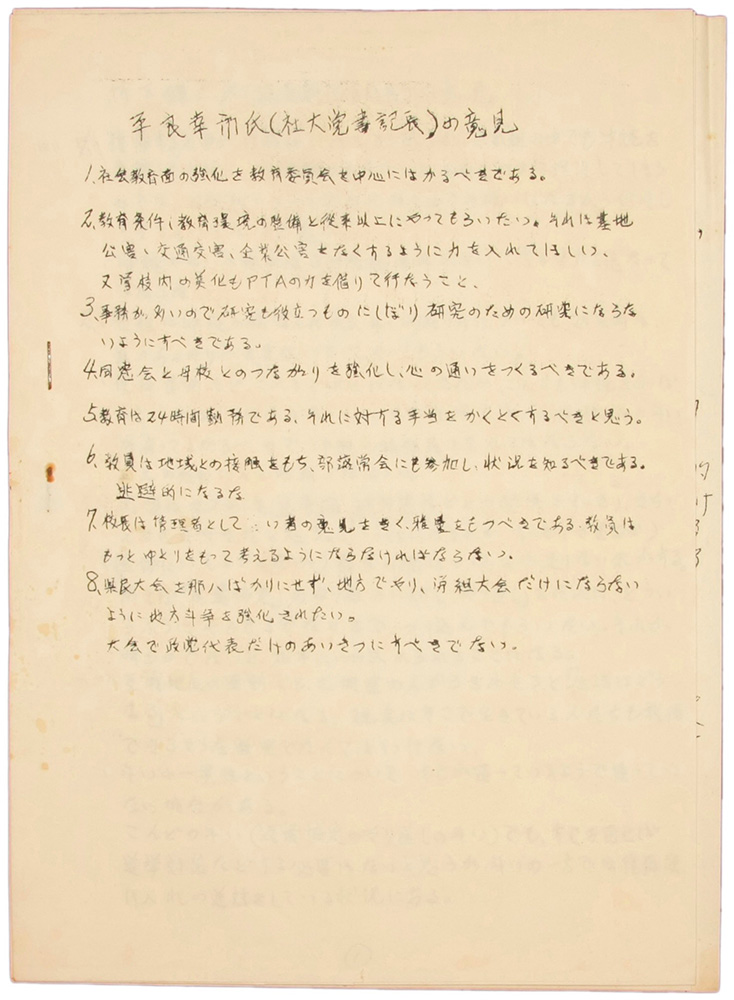 平良幸市氏(社大党書記長)の意見
1、社会教育面の強化を教育委員会を中心にはかるべきである。
2、教育条件、教育環境の整備と従来以上にやってもらいたい。それは基地
公害、交通災害、企業公害をなくするように力を入れてほしい、
又学校内の美化もPTAの力を借りて行なうこと、
3、事務が多いので研究も役立つものにしぼり研究のための研究にならな
いようにすべきである。
4、同窓会と母校とのつながりを強化し、心の通いをつくるべきである。
5、教育は24時間勤務である、それに対する手当をかくとくするべきと思う。
6、教員は地域との接触をもち、部落常会にも参加し、状況を知るべきである。
逃避的になるな
7、校長は管理者として い者の意見をきく、雅量をもつべきである、教員は
もっとゆとりをもって考えるようにならなければならない。
8、県民大会を那ハばかりにせず、地方でやり、労組大会だけにならない
ように地方斗争を強化されたい。
大会で政党代表だけのあいさつにすべきでない。